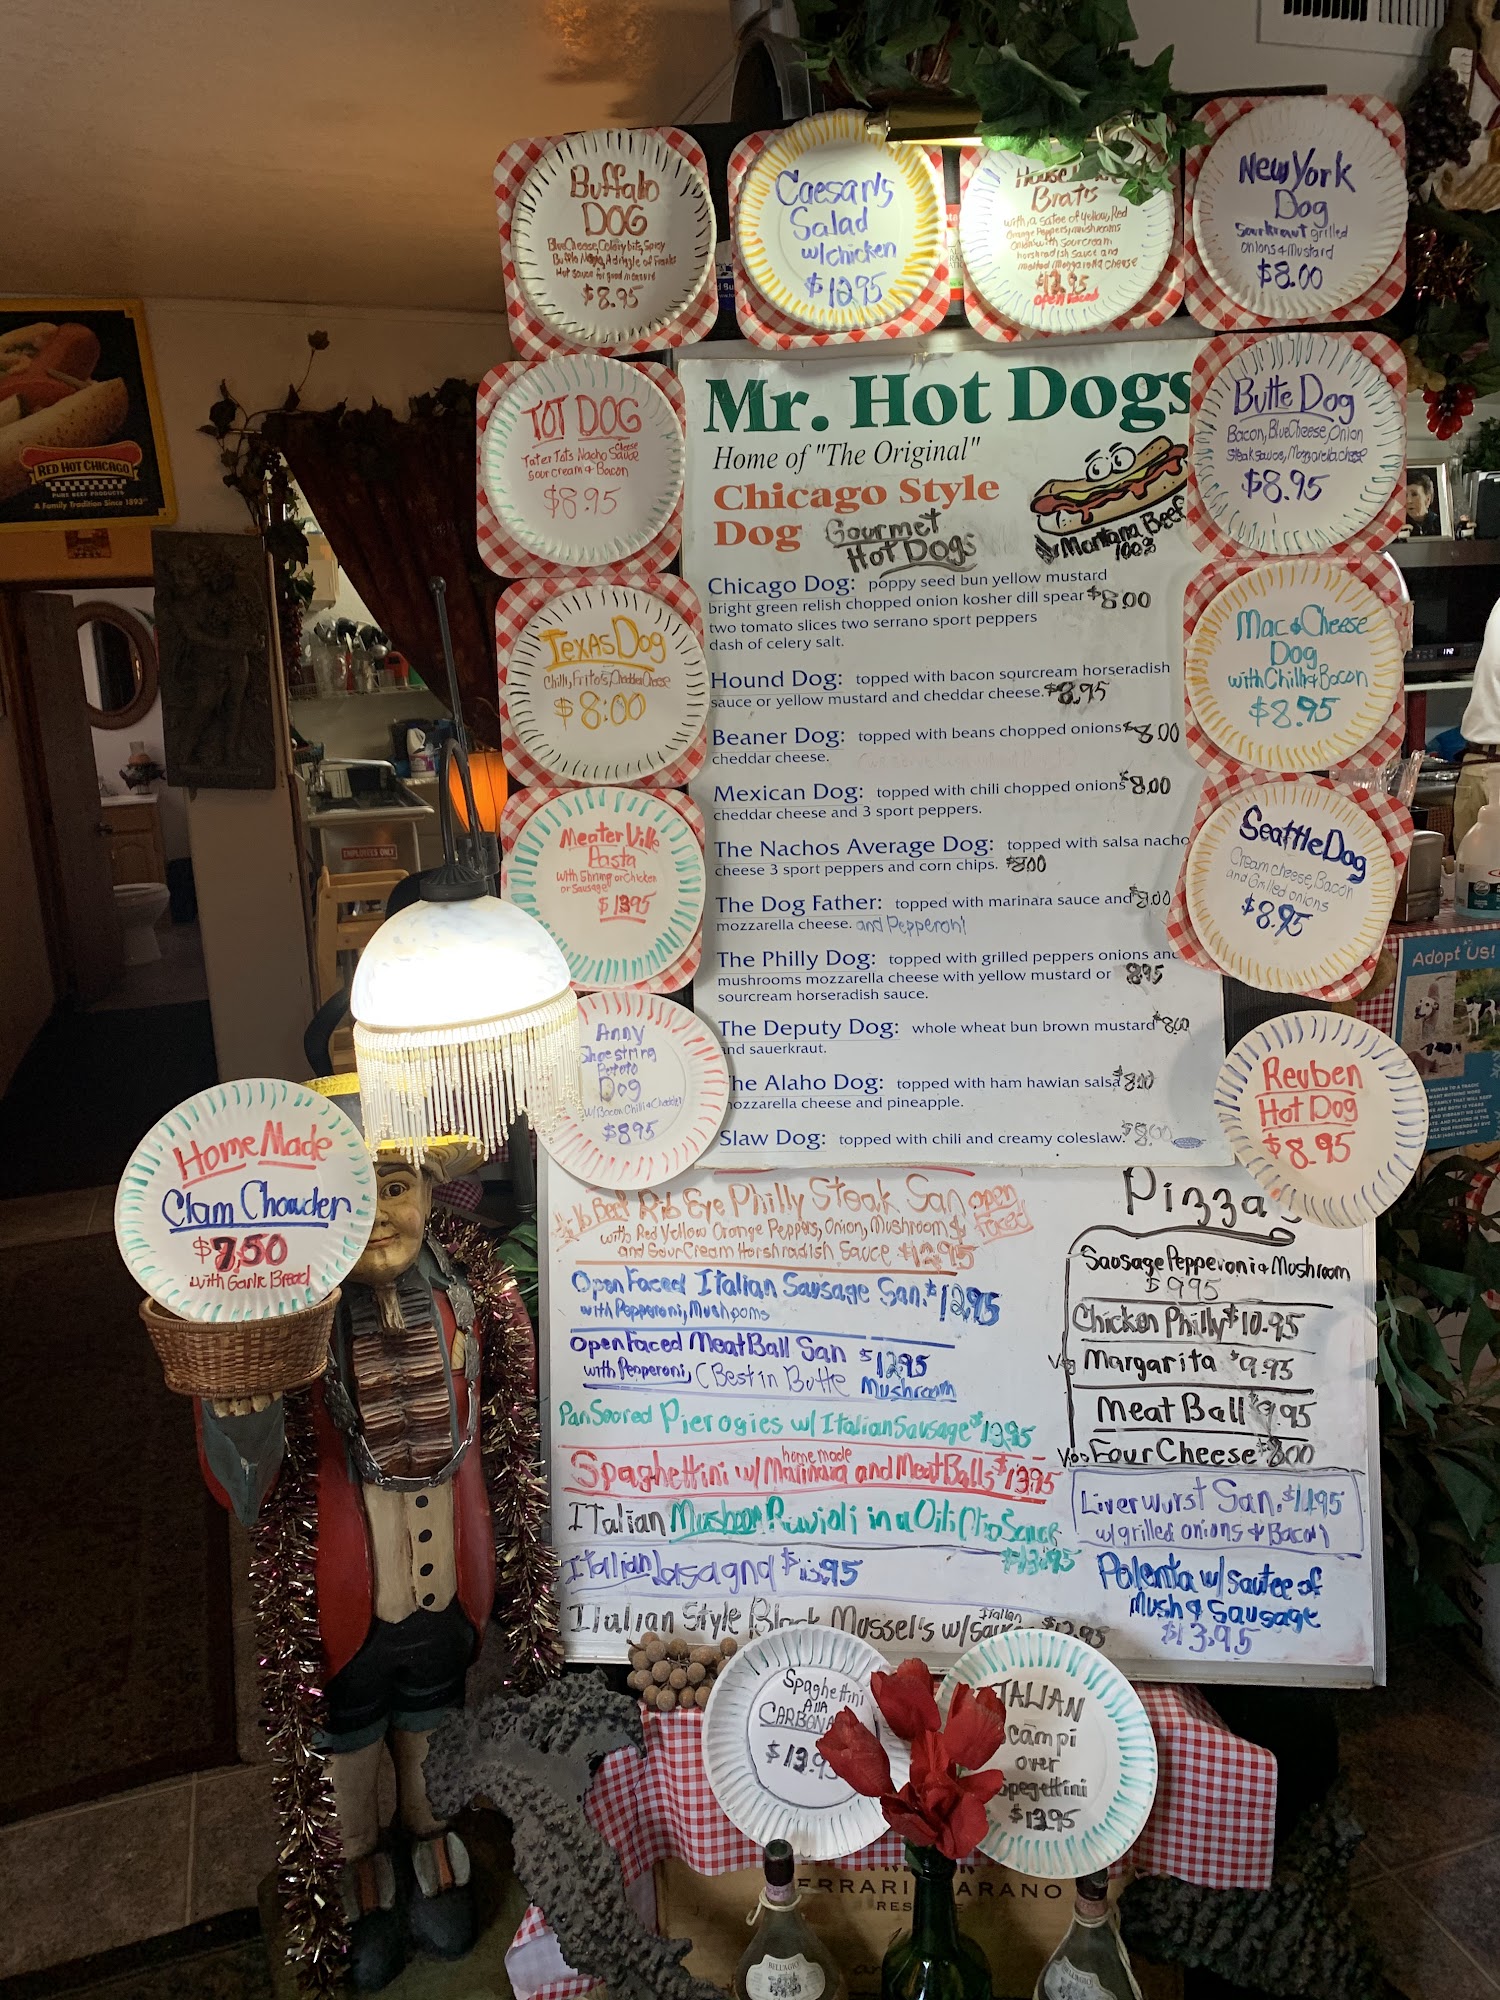 Buffalo
DOG
BlueCheese, Celery bits, Spicy
Buffalo Mayo, A drizzle of Franks
Hot sauce for good measure
$8.95
Caesar's
Salad
w/chicken
$12.95
House
Brat's
with a satee of Yellow, Red
Orange Peppers, mushrooms
Onion with sourcream
horshradish sauce and
melted Mozzarella cheese
$12.95
open faced
New York
Dog
Sourkraut grilled
onions & Mustard
$8.00
TOT DOG
Tater Tots Nacho Cheese Sauce
Sour cream + Bacon
$8.95
Butte Dog
Bacon, BlueCheese, Onion
Steak sauce, Mozzarella cheese
$8.95
Texas Dog
Chili, Frito's, Cheddar Cheese
$8:00
Mac & Cheese
Dog
with Chili & Bacon
$8.95
Meater Ville
Pasta
with Shrimp or Chicken
or Sausage
$13.95
Seattle Dog
Cream cheese, Bacon
and Grilled onions
$8.95
Anny
Shoestring
Potato
Dog
w/Bacon Chili & Cheddar
$8.95
Reuben
Hot Dog
$8.95
Home Made
Clam Chowder
$7.50
with Garlic Bread
RED HOT CHICAGO
PURE BEEF PRODUCTS
A Family Tradition Since 1893
EMPLOYEES ONLY
Mr. Hot Dogs
Home of "The Original"
Chicago Style
Dog Gourmet
Hot Dogs
Montana Beef
100%
Chicago Dog: poppy seed bun yellow mustard
bright green relish chopped onion kosher dill spear $8.00
two tomato slices two serrano sport peppers
dash of celery salt.
Hound Dog: topped with bacon sourcream horseradish
sauce or yellow mustard and cheddar cheese. $8.95
Beaner Dog: topped with beans chopped onions $8.00
cheddar cheese.
Mexican Dog: topped with chili chopped onions $8.00
cheddar cheese and 3 sport peppers.
The Nachos Average Dog: topped with salsa nacho
cheese 3 sport peppers and corn chips. $8.00
The Dog Father: topped with marinara sauce and $8.00
mozzarella cheese. and Pepperoni
The Philly Dog: topped with grilled peppers onions and
mushrooms mozzarella cheese with yellow mustard or 8.95
sourcream horseradish sauce.
The Deputy Dog: whole wheat bun brown mustard $8.00
and sauerkraut.
The Alaho Dog: topped with ham hawian salsa $8.00
mozzarella cheese and pineapple.
Slaw Dog: topped with chili and creamy coleslaw. $8.00
Adopt Us!
Beef Rib Eye Philly Steak San open
faced
with Red Yellow Orange Peppers, Onion, Mushroom &
and Sour Cream Horshradish Sauce $12.95
Open Faced Italian Sausage San. $12.95
with Pepperoni, Mushooms
Open Faced Meat Ball San $12.95
with Pepperoni, (Best in Butte Mushroom
Pan Seared Pierogies w/ Italian Sausage $13.95
Spaghettini w/ homemade Marinara and Meat Balls $13.95
Italian Mushroom Ravioli in a Oili Olio Sauce
$13.95
Italian lasagna $13.95
Italian Style Black Mussel's w/ Italian sauce $12.95
Pizza
Sausage Pepperoni & Mushroom
$9.95
Chicken Philly $10.95
Veg Margarita $9.95
Meat Ball $9.95
Four Cheese $8.00
Liverwurst San. $11.95
w/grilled onions & Bacon
Polenta w/ sautee of
Mush & Sausage
$13.95
Spaghettini
Alla
CARBONA
$13.9
ITALIAN
Scampi
over
Spegettini
$13.95
FERRARI CARANO
RESERVE
BELLAGIO
BELLAGIO